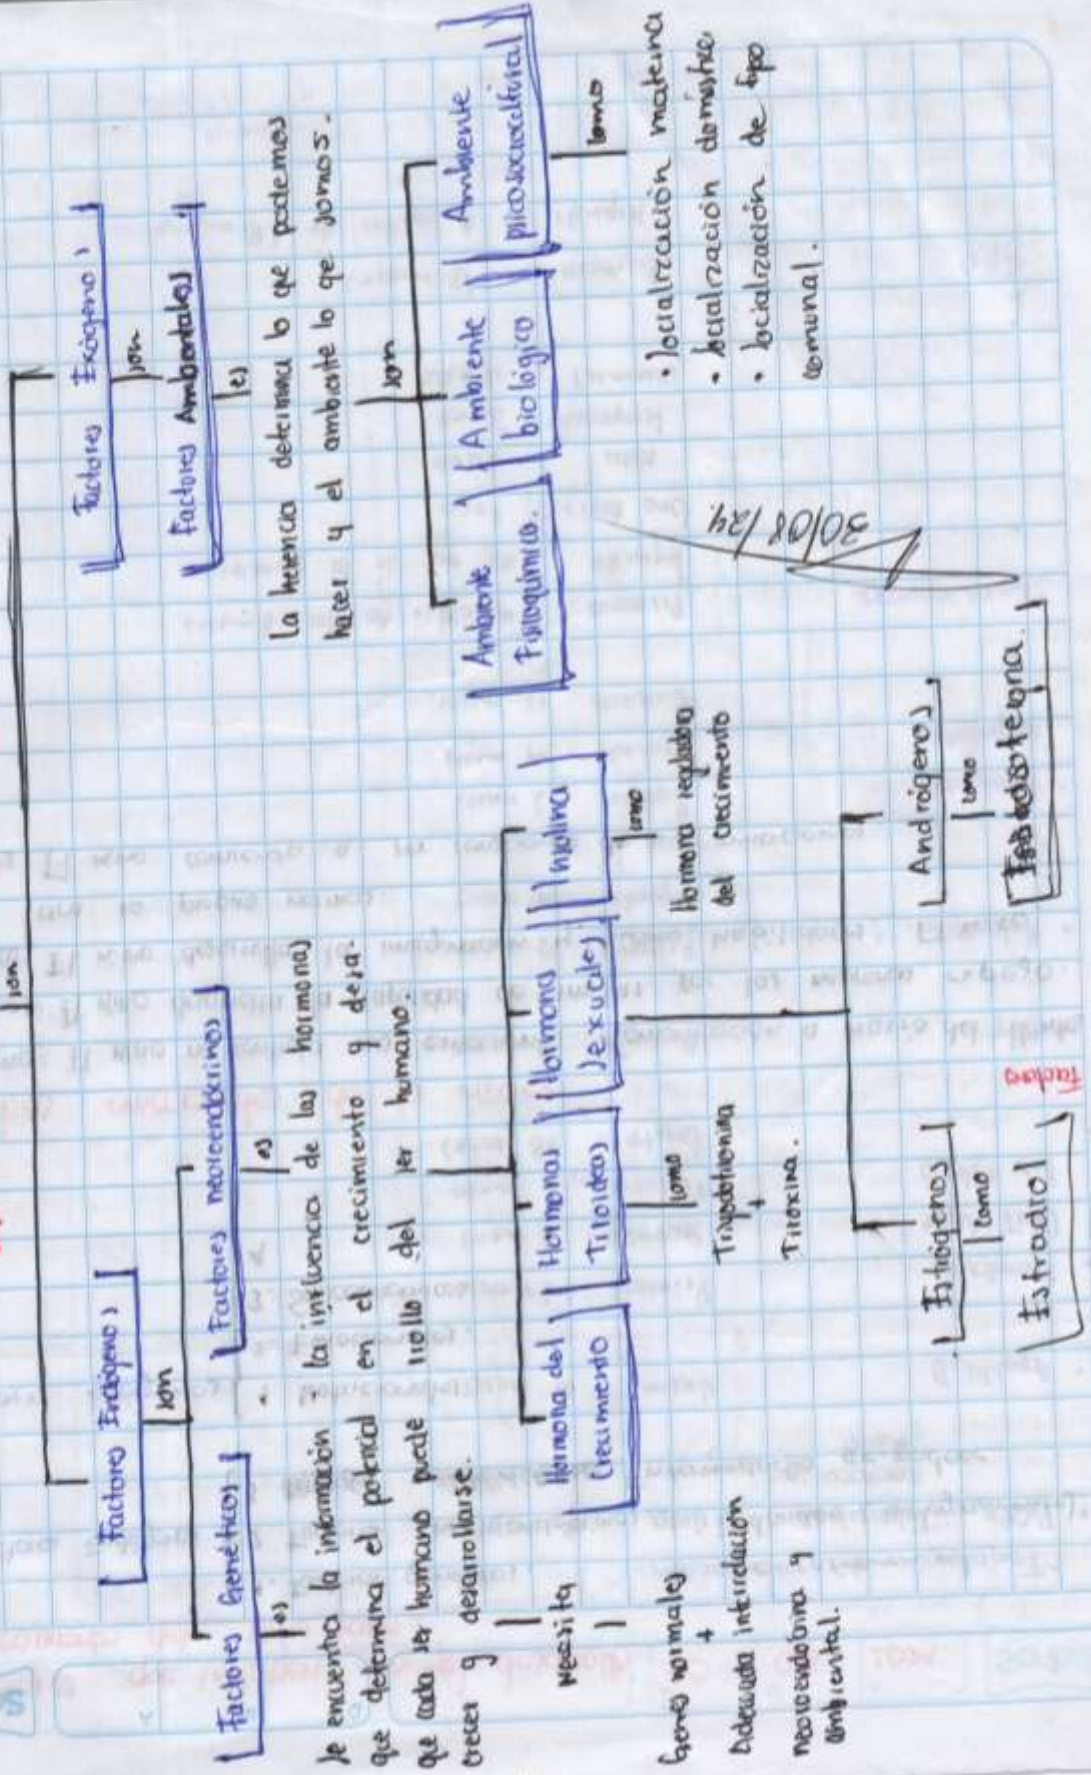 son
Factores Endógenos
son
Factores Genéticos
es
Se encuentra la información
que determina el potencial
que cada ser humano puede
crecer y desarrollarse.
Necesita
Genes normales
+
Adecuada interrelación
neuroendocrina y
ambiental.
Factores neoroendocrinos
es
La influencia de las hormonas
en el crecimiento y desa-
rrollo del ser humano
Hormona del
Crecimiento
Hormonas
Tiroideas
como
+
Tiroxina.
Hormonas
Sexuales
Estrógenos
como
Estradiol
Andrógenos
como
Insulina
como
Hormona reguladora
del crecimiento
Factores Exógenos
son
Factores Ambientales
es
La herencia determina lo que podemos
hacer y el ambiente lo que somos.
son
Ambiente
Fisicoquímico.
Ambiente
biológico
Ambiente
psicosociocultural
como
• Socialización materna
• Socialización doméstica
• Socialización de tipo
comunal.
30/08/24
factores